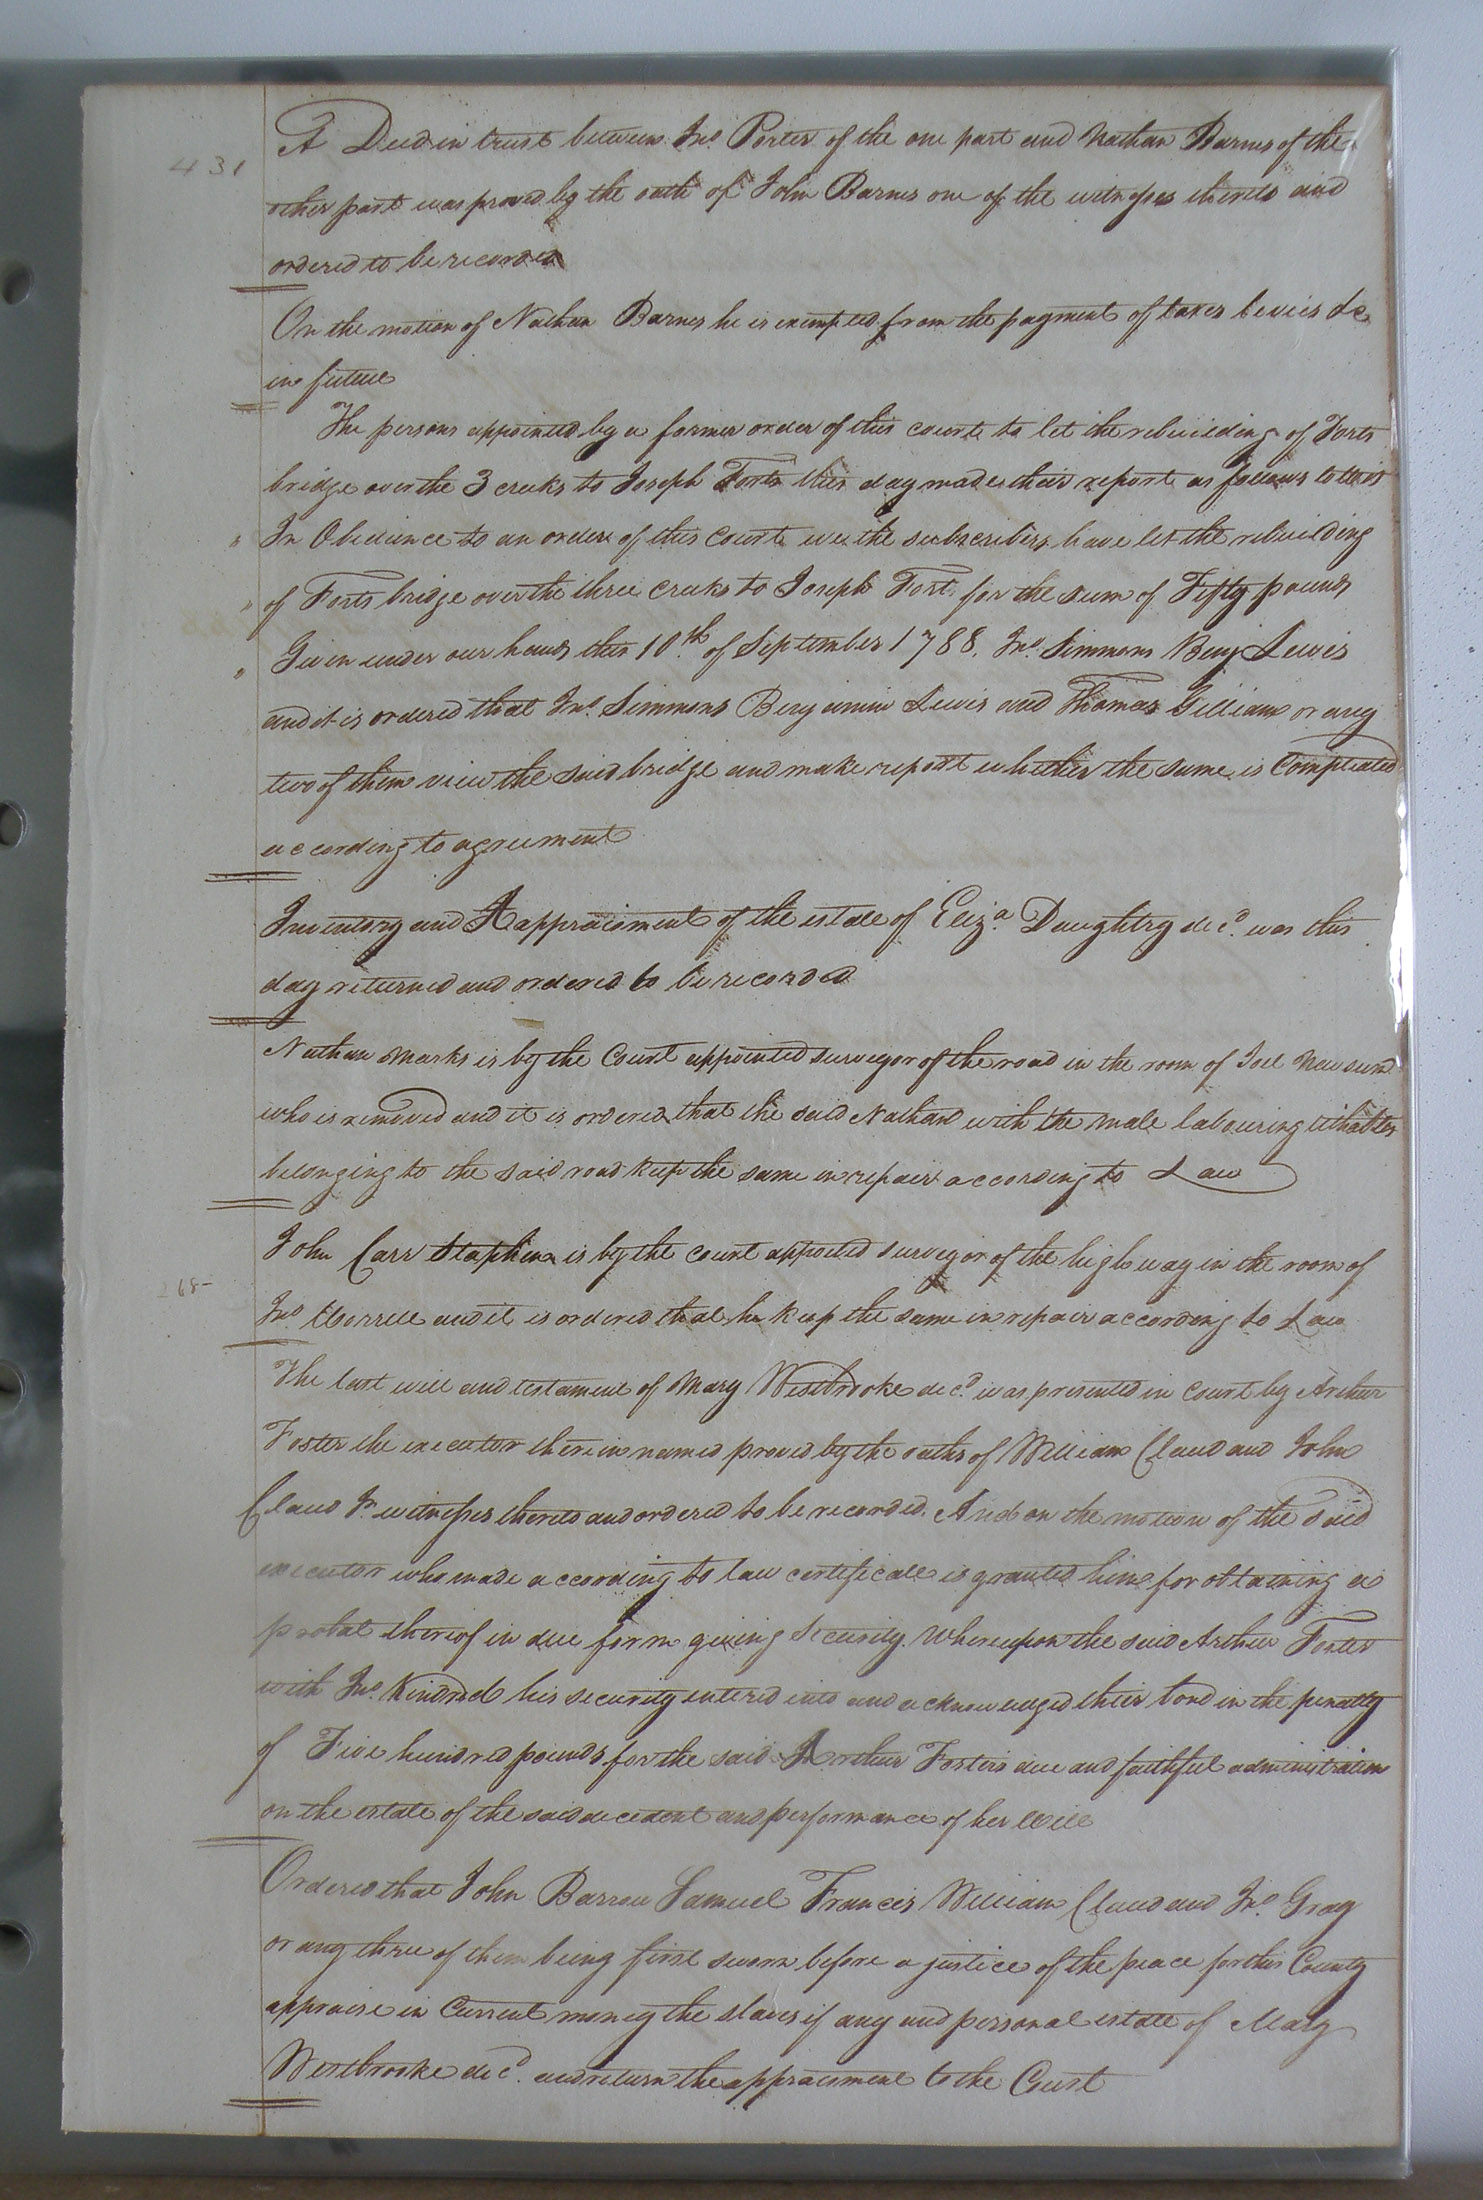 431
A Deed in trust between Jno. Porter of the one part and Nathan Barnes of the
other part was proved by the oath of John Barnes one of the witnesses thereto and
ordered to be recorded
On the motion of Nathan Barnes he is exempted from the payment of taxes levies &c
in future
The persons appointed by a former order of this court to let the rebuilding of Forts
bridge over the 3 creeks to Joseph Forts this day made their report as follows towit
" In Obedience to an order of this Court we the subscribers have let the rebuilding
" of Forts bridge over the three Creeks to Joseph Fort for the sum of Fifty pounds
" Given under our hands this 10th. of September 1788. Jno. Simmons Benj Lewis
and it is ordered that Jno. Simmons Benjamin Lewis and Thomas Gilliam or any
two of them view the said bridge and make report whether the same is Compleated
according to agreement
Inventory and Aappraisment of the estate of Eliza. Daughtry decd. was this
day returned and ordered to be recorded
Nathan Marks is by the Court appointed surveyor of the road in the room of Joel Newsum
who is removed and it is ordered that the said Nathan with the male labouring tithables
belonging to the said road keep the same in repair according to Law
John Carr Staphen is by the court appoited surveyor of the highway in the room of
68-
Jno. Worrell and it is ordered that he keep the same in repair according to Law
The last will and testament of Mary Westbrooke decd. was presented in court by Arthur
Foster the executor therein named proved by the oaths of William Claud and John
Claud Jr. witnesses thereto and ordered to be recorded. And on the motion of the said
executor who made according to law certificate is granted him for obtaining a
probat thereof in due form giving security. Whereupon the said Arthur Foster
with Jno. Kindred his security entered into and acknowleged their bond in the penalty
of Five hundred pounds for the said Arthur Foster's due and faithful administration
on the estate of the said decedent and performance of her Will
Ordered that John Barrow Samuel Francis William Claud and Jno. Gray
or any three of them being first sworn before a justice of the peace for this County
appraise in Current money the slaves if any and personal estate of Mary
Westbrooke decd. and return the appraisment to the Court